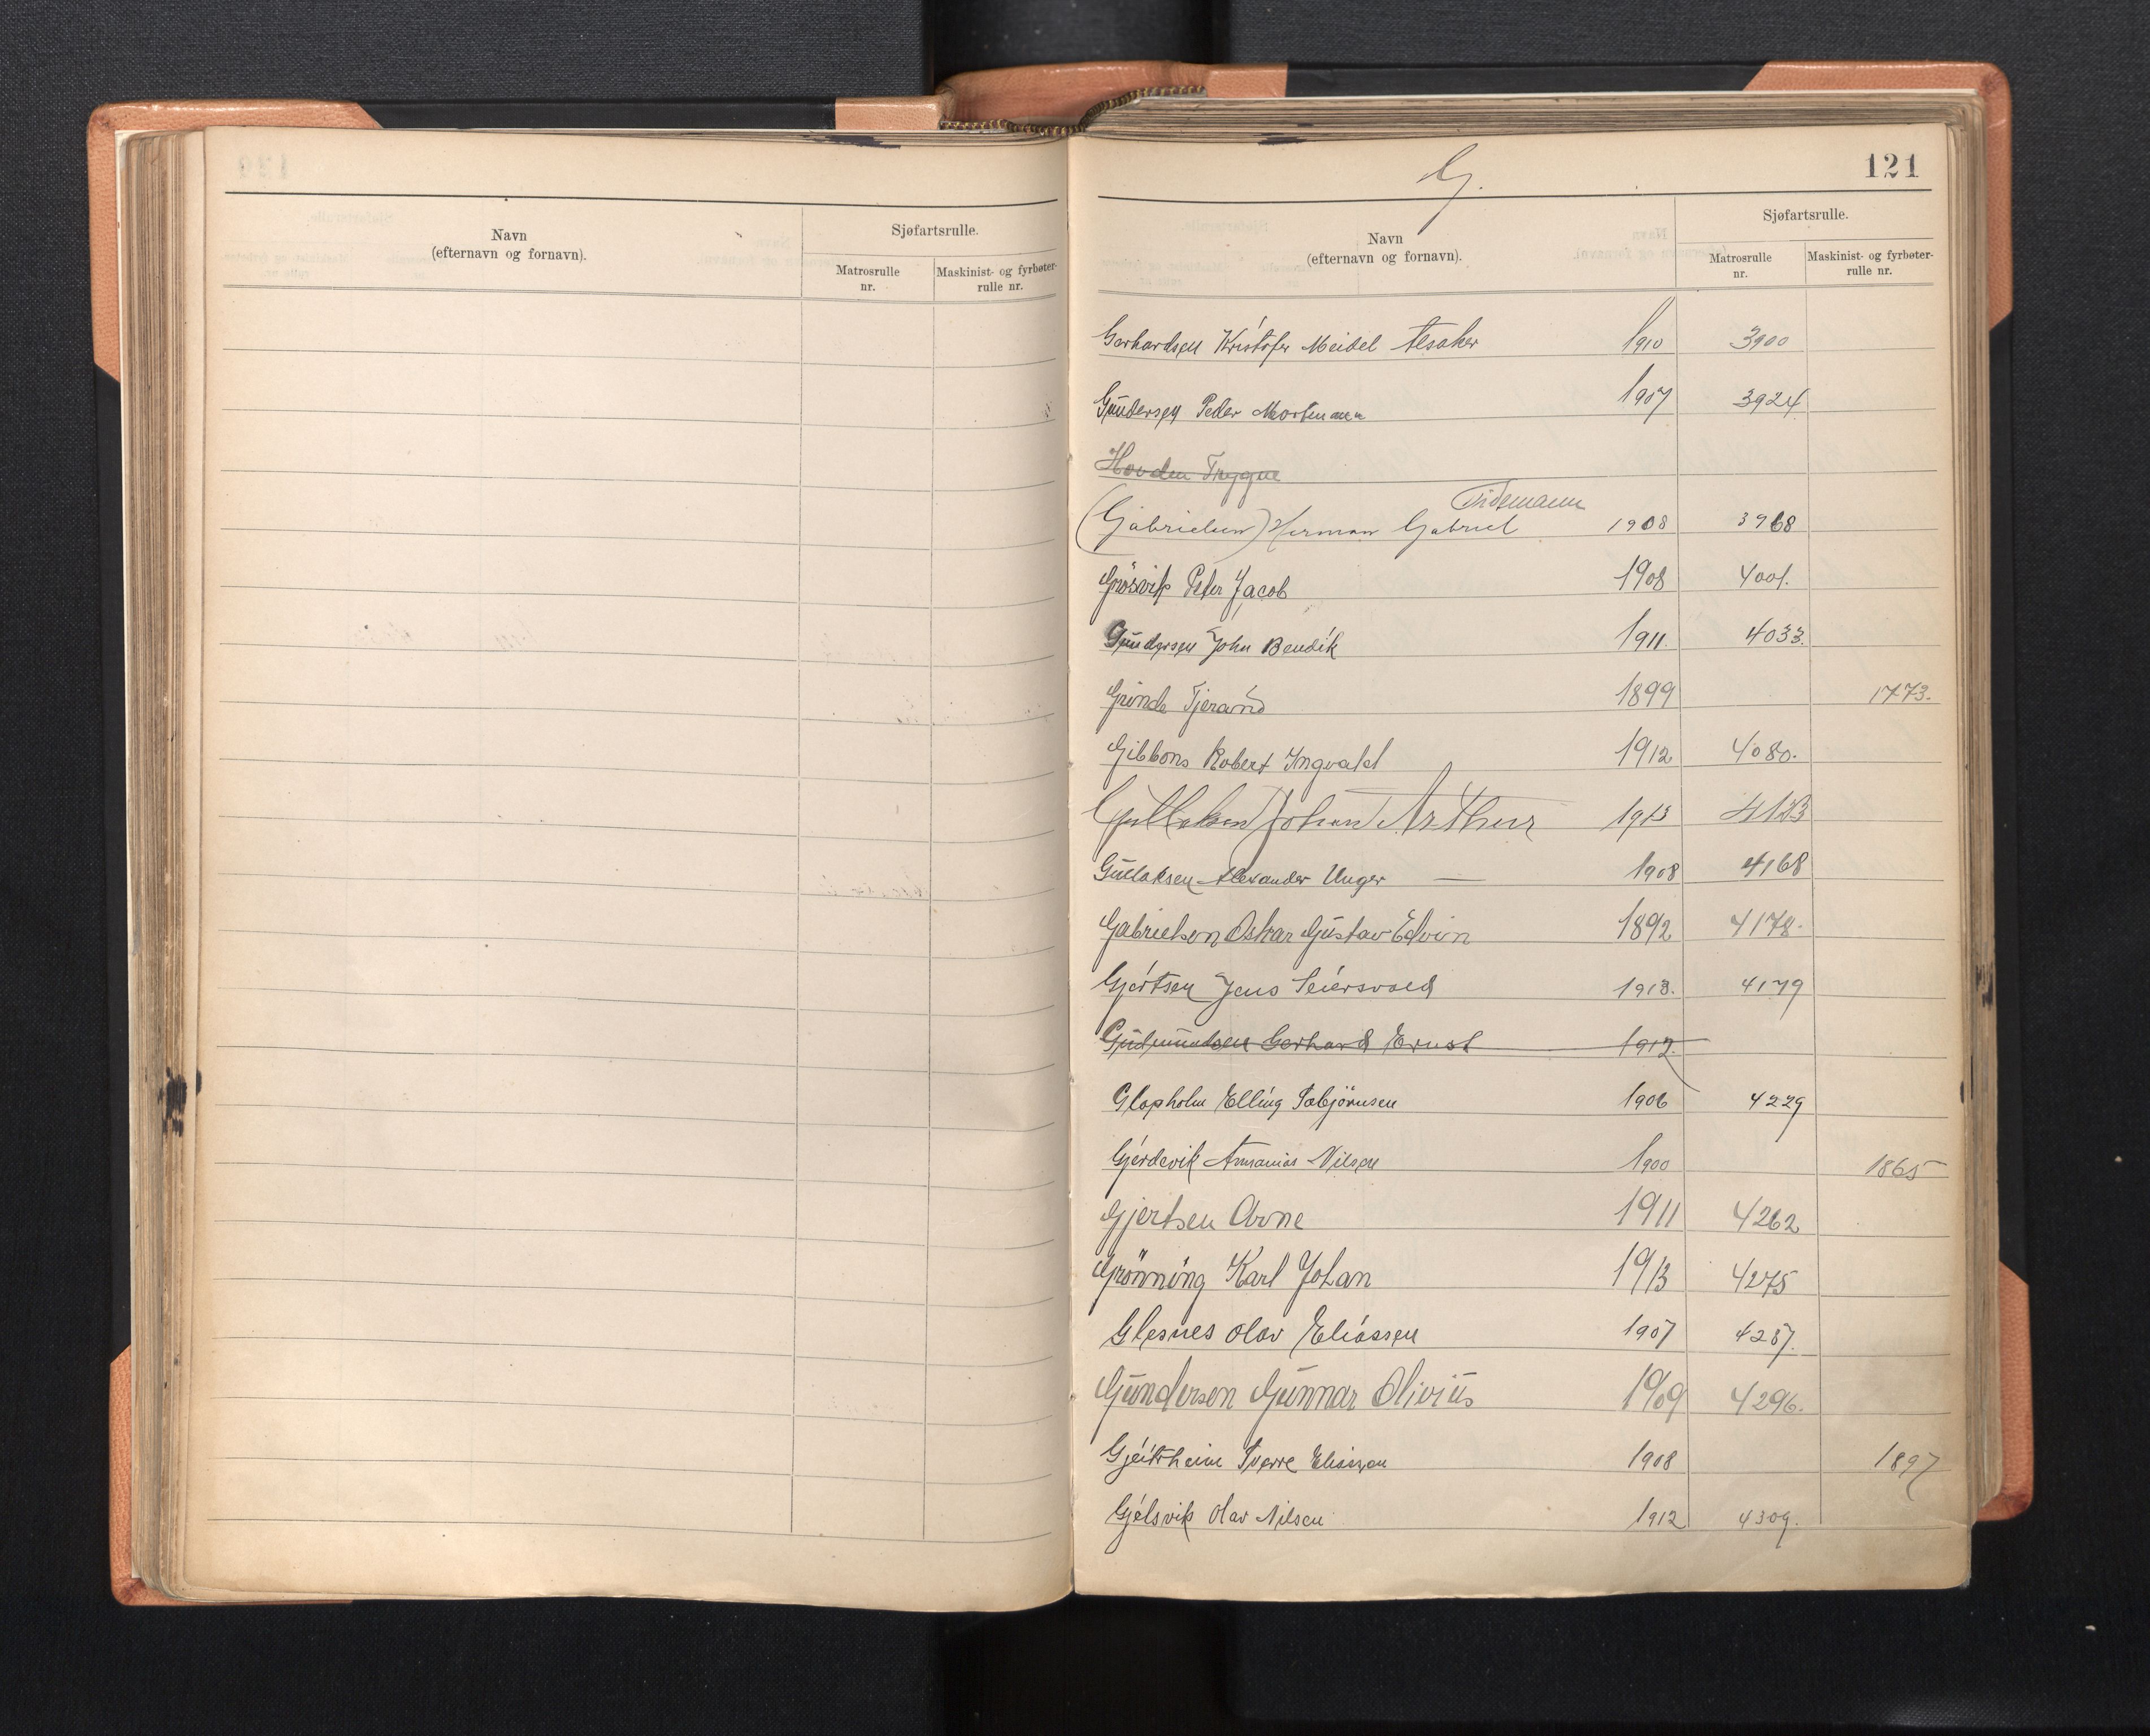 Navn
(efternavn og fornavn).
Sjøfartsrulle.
Matrosrulle
nr.
Maskinist- og fyrbøter-
rulle nr.
G.
121
Navn
(efternavn og fornavn).
Sjøfartsrulle.
Matrosrulle
nr.
Maskinist- og fyrbøter-
rulle nr.
Gerhardsen Kristofer Meidel Aesaker 1910 3900
Gundersen Peder Mortmann 1907 3924
Hovden Trygve
Tidemann
(Gabrielsen) Herman Gabriel 1908 3968
Grösvik Peter Jacob 1908 4001.
Gundersen John Bendik 1911. 4033.
Grinde Tjerand 1899 1773.
Gibbons Robert Ingvald 1912 4080.
Gullaksen Johan Arthur 1913 4123
Gullaksen Alexander Unger — 1908 4168
Gabrielsen Oskar Gustav Edvin 1892 4178.
Gjertsen Jens Seiersvold 1913. 4179
Gudmundsen Gerhard Ernst 1912.
Glapholm Elling Torbjörnsen 1906 4229
Gjerdevik Ananias Nilsen 1900 1865
Gjertsen Arne 1911 4262
Grönning Karl Johan 1913 4275
Glesnes Olav Eliassen 1907 4287.
Gundersen Gunnar Olivius 1909 4296.
Gjeitrheim Sverre Eliassen 1908 1897
Gjelsvik Olav Nilsen 1912 4309.